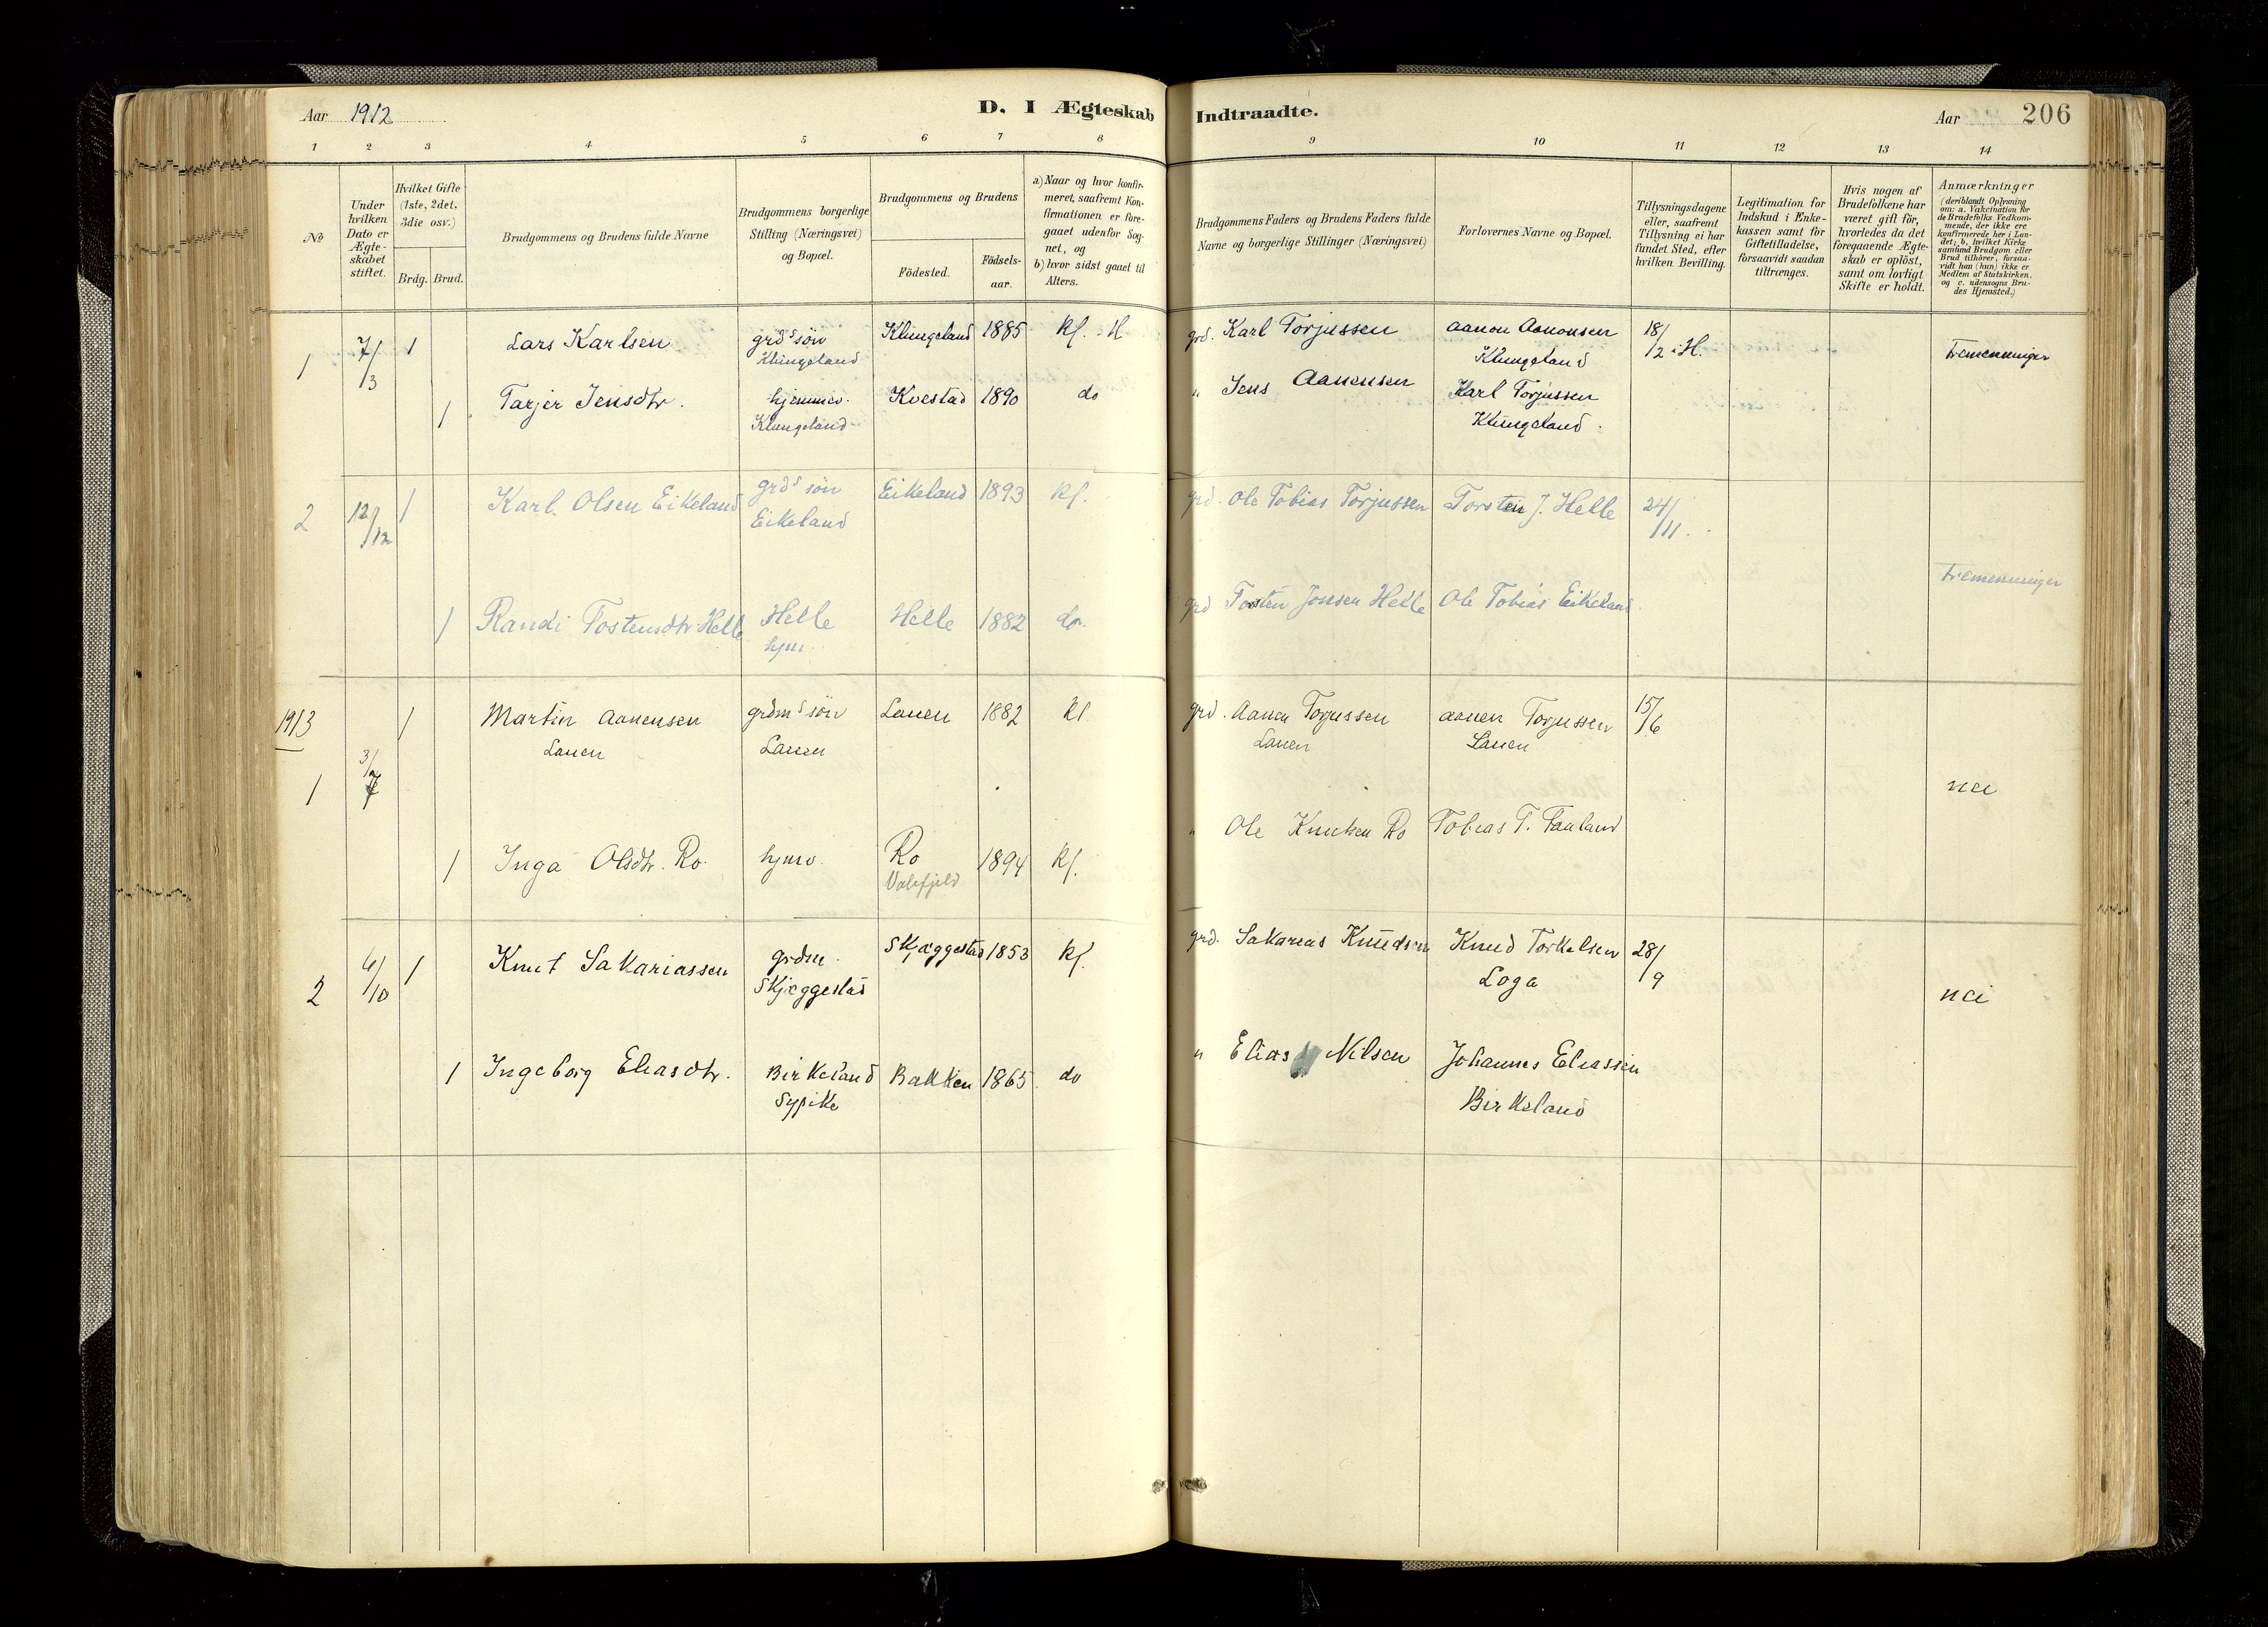 Aar 1912
D. I Ægteskab Indtraadte.
Aar 206
1 2 3 4 5 6 7 8 9 10 11 12 13 14
No
Under hvilken Dato er Ægte-skabet stiftet.
Hvilket Gifte (1ste, 2det, 3die osv.)
Brdg. Brud.
Brudgommens og Brudens fulde Navne
Brudgommens borgerlige Stilling (Næringsvei) og Bopæl.
Brudgommens og Brudens
Födested. Födsels-aar.
a) Naar og hvor konfir-meret, saafremt Kon-firmationen er fore-gaaet udenfor Sog-net, og
b) hvor sidst gaaet til Alters.
Brudgommens Faders og Brudens Faders fulde Navne og borgerlige Stillinger (Næringsvei)
Forlovernes Navne og Bopæl.
Tillysningsdagene eller, saafremt Tillysning ei har fundet Sted, efter hvilken Bevilling.
Legitimation for Indskud i Ænke-kassen samt for Giftetilladelse, forsaavidt saadan tiltrænges.
Hvis nogen af Brudefolkene har været gift för, hvorledes da det foregaaende Ægte-skab er oplöst, samt om lovligt Skifte er holdt.
Anmærkninger (deriblandt Oplysning om: a. Vakcination for de Brudefolks Vedkom-mende, der ikke ere konfirmerede her i Lan-det; b. hvilket Kirke samfund Brudgom eller Brud tilhörer, forsaa-vidt han (hun) ikke er Medlem af Statskirken, og c. udensogns Bru-des Hjemsted.)
1 7/3 1 Lars Karlsen grds søn Klungeland Klungeland 1885 Kf. i H grd. Karl Torjussen Aanon Aanonsen Klungeland 18/2 i H. Tremenninger
1 Tarjer Jensdtr. hjemmev. Klungeland Kvestad 1890 do " Jens Aanensen Karl Torjussen Klungeland.
2 12/12 1 Karl Olsen Eikeland grds søn Eikeland Eikeland 1893 Kf. grd. Ole Tobias Torjussen Torstein J. Helle 24/11. Tremenninger
1 Randi Tostensdtr. Helle Helle hjm. Helle 1882 do. grd Tosten Jonsen Helle Ole Tobias Eikeland.
1913
1 3/7 1 Martin Aanensen Lauen grdms søn Lauen Lauen 1882 Kf. grd. Aanen Torjussen Lauen Aanen Torjussen Lauen 15/6 nei
1 Inga Olsdtr. Ro. hjmv. Ro 1894 Kf. " Ole Knutsen Ro Tobias T. Fauland
2 4/10 1 Knut Sakariassen grdm. Skjæggestad Skjæggestad 1853 Kf. grd. Sakarias Knudsen Knud Torkelsen Loga 28/9 nei
1 Ingeborg Eliasdtr. Birkeland Sypike Bakken 1865 do " Elias Nilsen Johannes Eliassen Birkeland